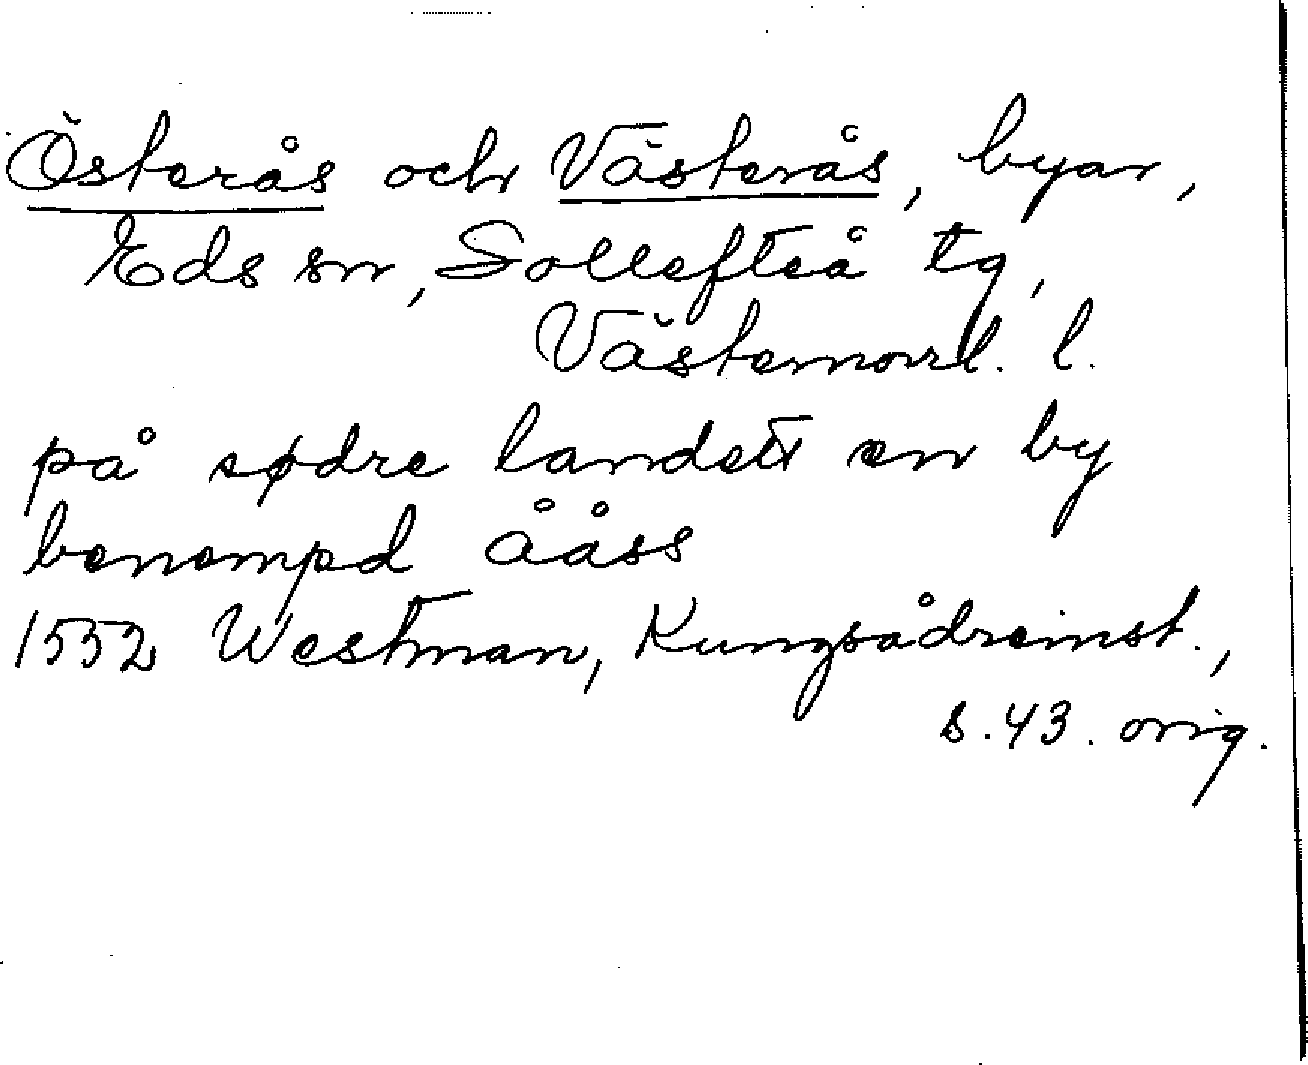 Österås och Västerås, byar,
Eds sn, Sollefteå tg,
Västernorrl. l.
på sødre landett en by
benempd ååss
1552 Westman, Kungsådreinst.,
s. 43. orig.